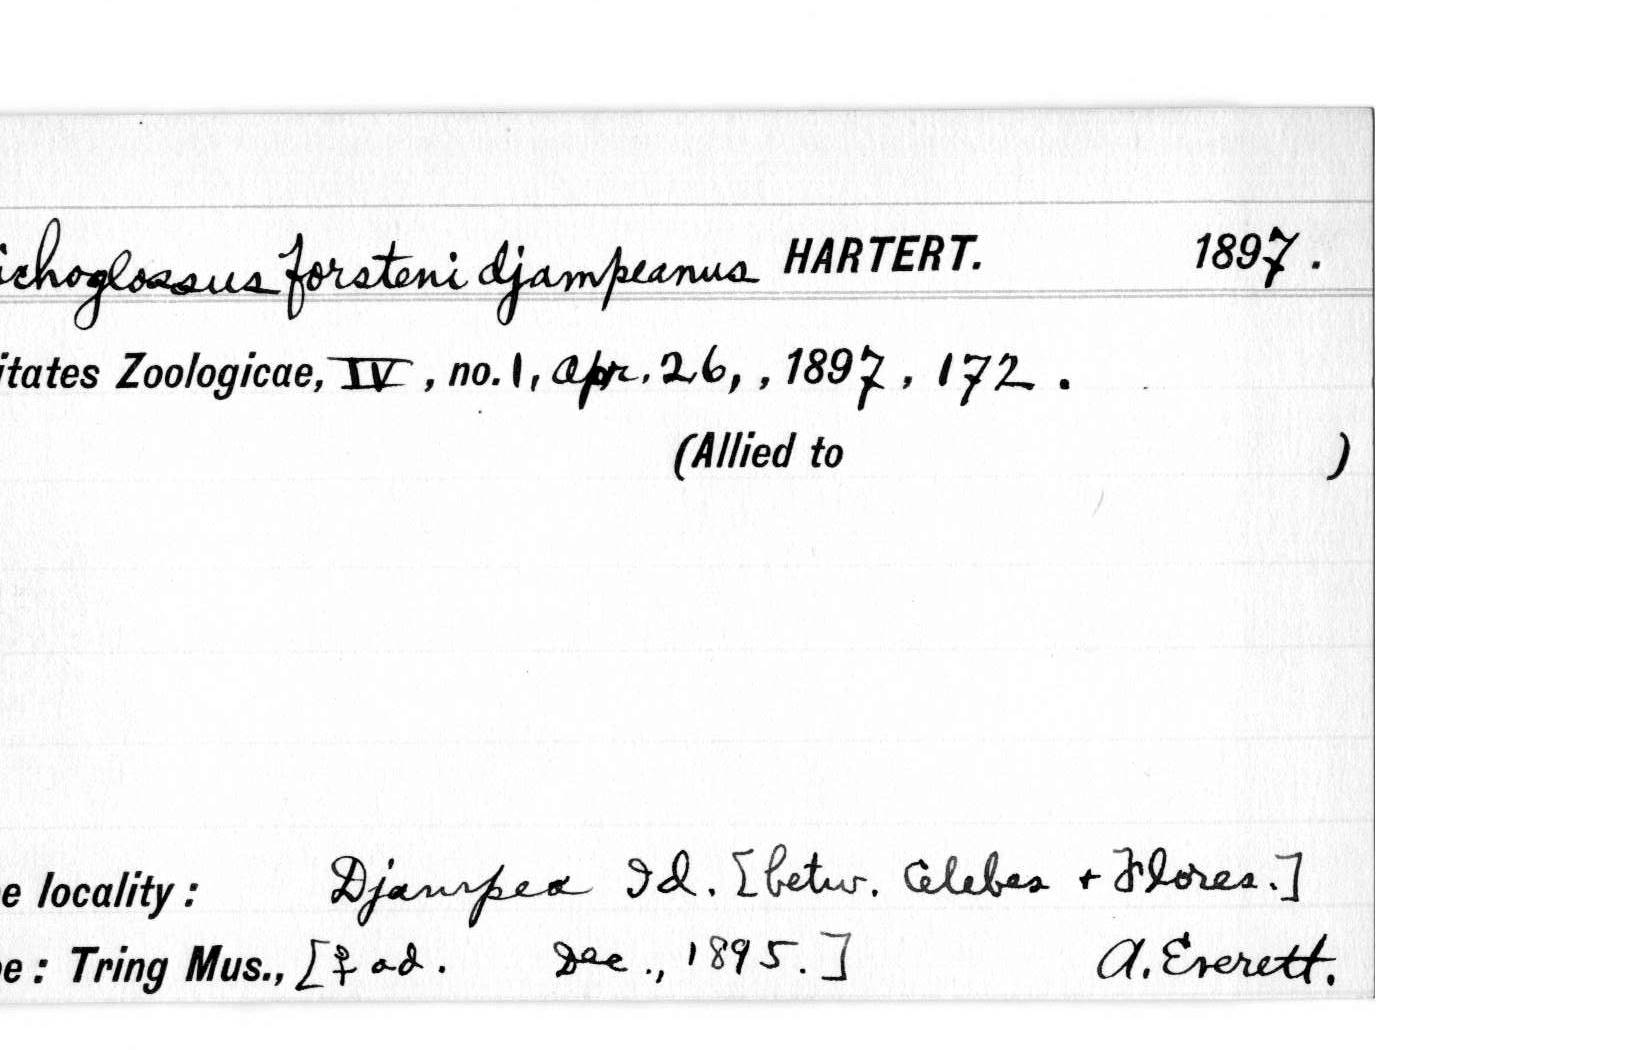 ichoglossus forsteni djampeanus HARTERT. 1897.
itates Zoologicae, IV, no. 1, Apr. 26, , 1897, 172.
(Allied to )
e locality: Djampea Id. [betw. Celebes + Flores.]
e: Tring Mus., [♀ ad. Dec., 1895.] A. Everett.